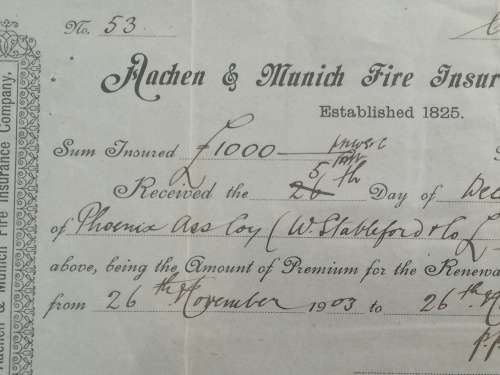 No. 53.
Aachen & Munich Fire Insur
Established 1825.
Sum Insured £1000
Received the 26 5th Day of Dec
of Phoenix Ass Coy (W. Stableford & Co £
above, being the Amount of Premium for the Renewa
from 26th November 1903 to 26th N
p.p.
Aachen & Munich Fire Insurance Company.